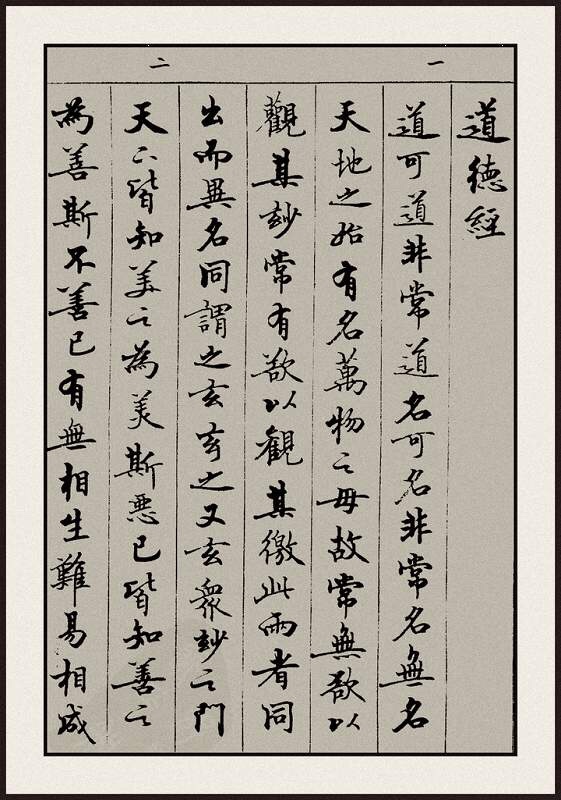 道德經
一
道可道非常道名可名非常名無名
天地之始有名萬物之母故常無欲以
觀其玅常有欲以觀其徼此兩者同
出而異名同謂之玄玄之又玄衆玅之門
二
天下皆知美之為美斯惡已皆知善之
為善斯不善已有無相生難易相成